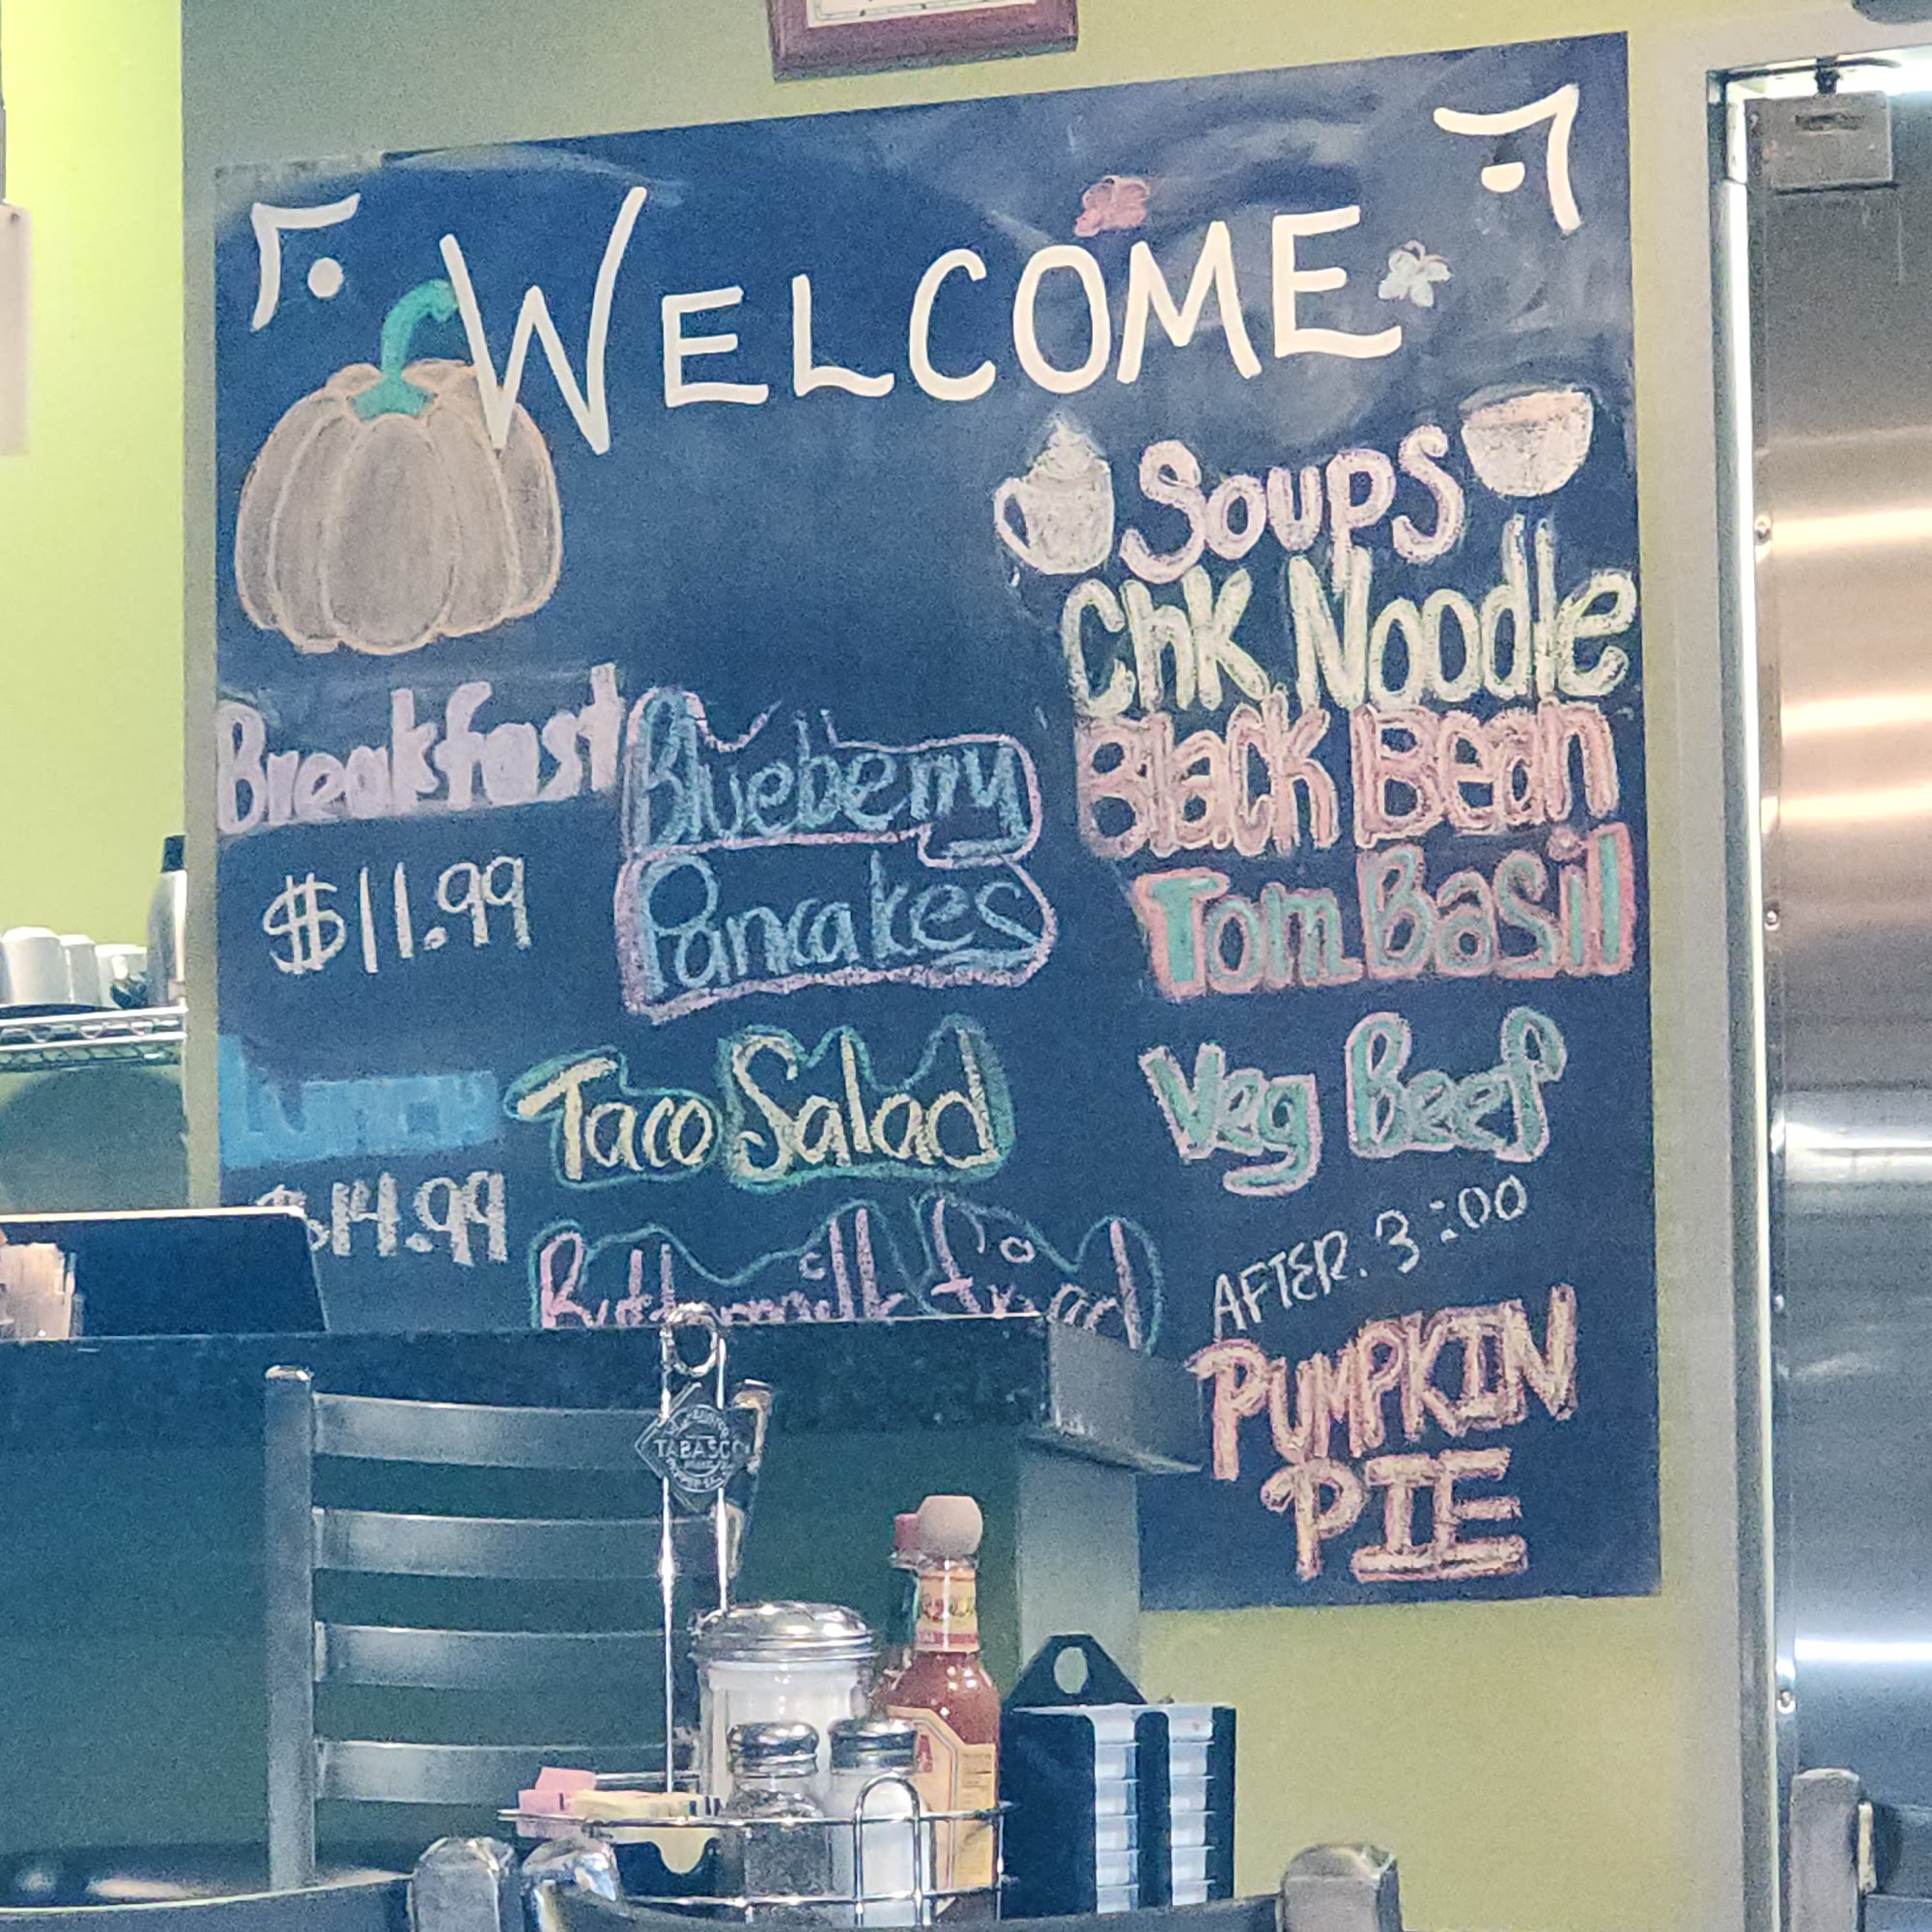 WELCOME
Breakfast
$11.99
Blueberry
Pancakes
Lunch
$14.99
Taco Salad
Buttermilk fried
Soups
Chk Noodle
Black Bean
Tom Basil
Veg Beef
AFTER. 3:00
PUMPKIN
PIE
TABASCO